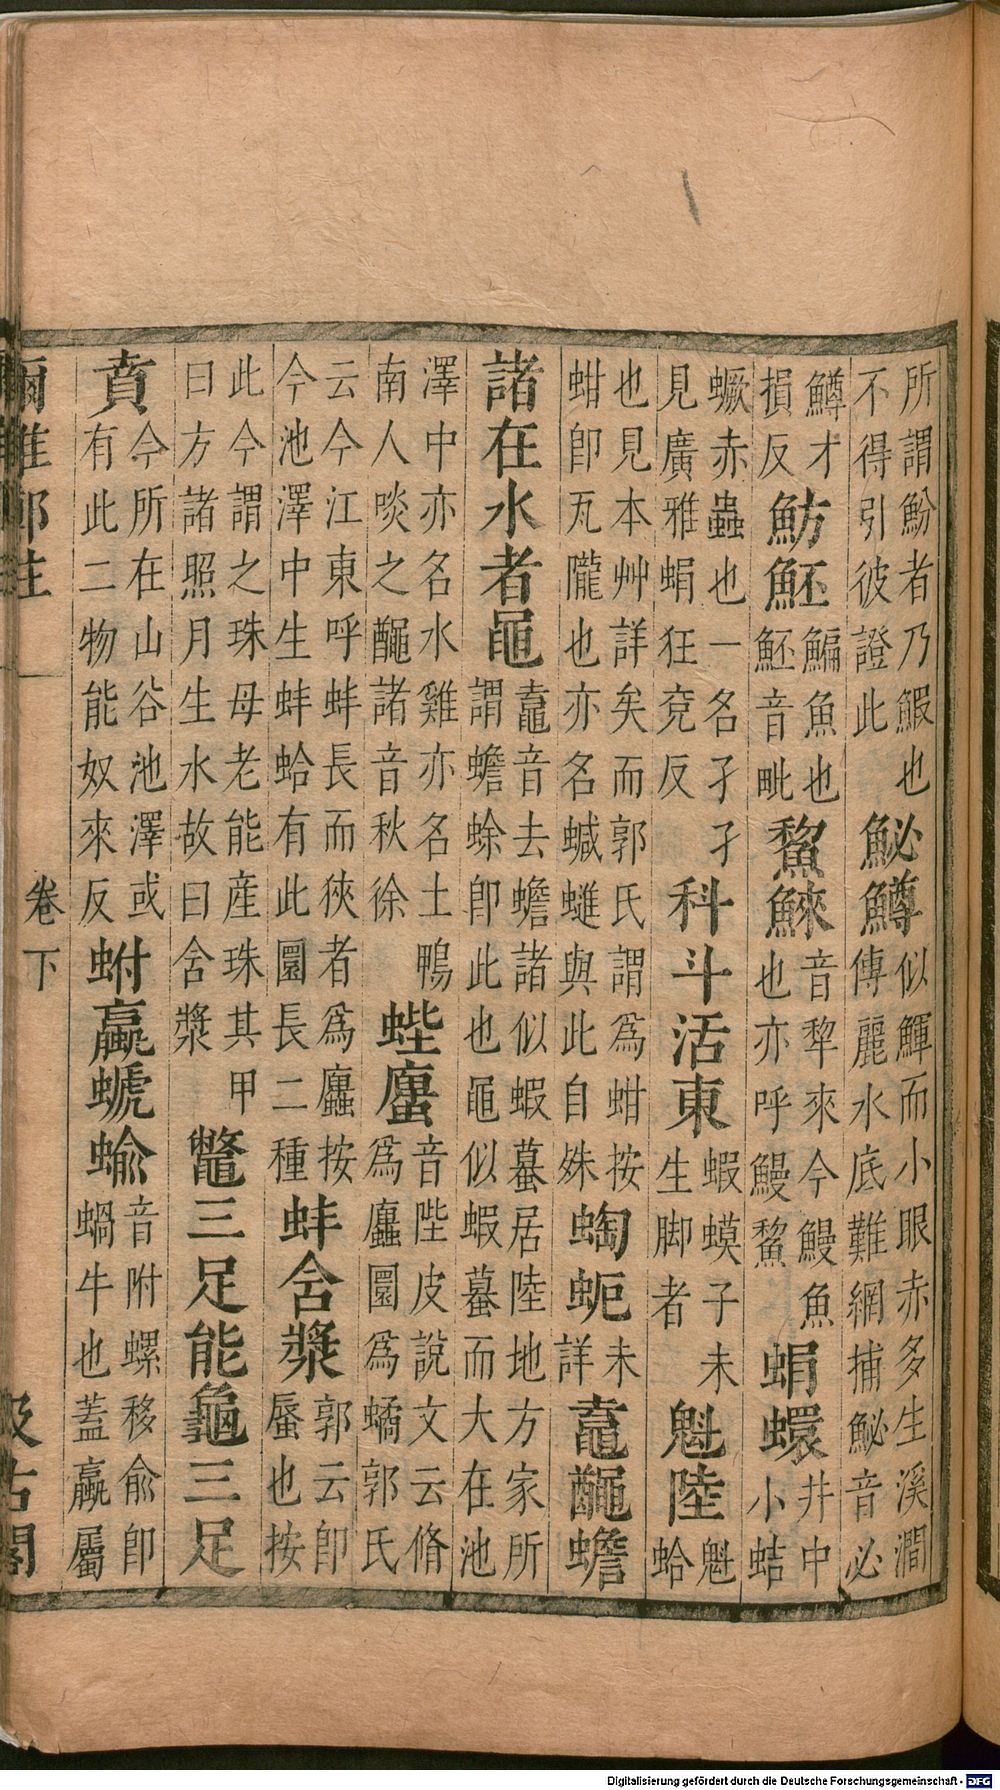 所謂魵者乃鰕也
不得引彼證此
鮅鱒
似鯶而小眼赤多生溪澗
傳麗水底難網捕鮅音必
鱒才
損反
魴魾
鯿魚也
魾音毗
鯬鯠
音犂來今鰻魚
也亦呼鰻鯬
蜎蠉
井中小蛣
蟩赤蟲也一名孑孓
見廣雅蜎狂兗反
科斗活東
蝦蟆子未
生脚者
魁陸
魁蛤
也見本艸詳矣而郭氏謂爲蚶按
蚶卽瓦隴也亦名蚶與此自殊
蜪蚅
未詳
鼀𪓰蟾
諸在水者黽
鼀音去蟾諸似蝦蟇居陸地方家所
謂蟾蜍卽此也黽似蝦蟇而大在池
澤中亦名水雞亦名土鴨
南人啖之𪓰諸音秋徐
蜌螷
音陛皮說文云脩
爲蠯圓爲蠣郭氏
云今江東呼蚌長而狹者爲蠯按
今池澤中生蚌蛤有此圓長二種
蚌含漿
郭云卽
蜃也按
此今謂之珠母老能産珠其甲
曰方諸照月生水故曰含漿
鼈三足能龜三足
賁
今所在山谷池澤或
有此二物能奴來反
蚹蠃螔蝓
音附螺移俞卽
蝸牛也蓋蠃屬
卷下